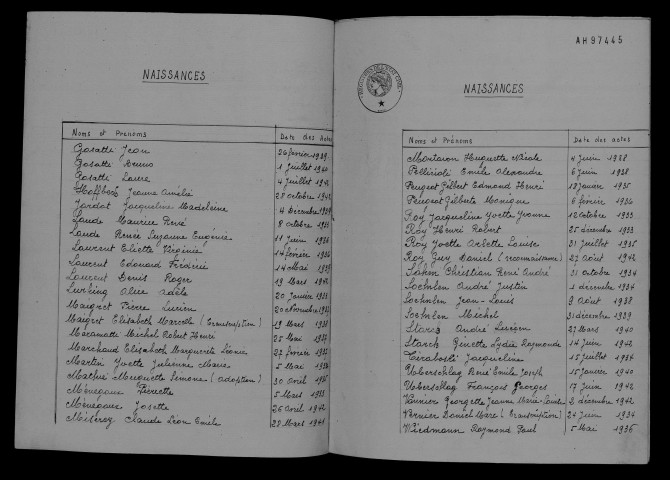 NAISSANCES
Noms et Prenoms Date des Actes
Gosatti Jean 26 février 1939
Gosatti Bruno 1 Juillet 1940
Rosatti Laure 4 Juillet 1942
Hoffbeck Jeanne Amélie 28 octobre 1942
Jardot Jacqueline Madeleine 4 Decembre 1939
Laude Maurice René 8 octobre 1933
Laude Renée Suzanne Eugénie 11 Juin 1936
Laurent Eliette Virginie 14 février 1936
Laurent Edouard Frédéric 14 Mai 1939
Laurent Denis Roger 19 Mars 1942
Alice Adèle 20 Janvier 1938
Maigret Pierre Lucien 20 novembre 1937
Maigret Elisabeth Marcelle (Transcription) 19 Mars 1938
Michel Robert Henri 25 Mai 1937
Marchand Elisabeth Marguerite 22 février 1937
Martin Yvette Julienne Marie 5 Mai 1936
Huguette Simone (adoption) 30 Avril 1936
Ménegaux Pierrette 5 Mars 1938
Ménegaux Josette 26 Avril 1942
Claude Léon Emile 28 Mars 1941
AH97445
NAISSANCES
Noms et Prénoms Date des actes
Montavon Huguette Nicole 4 Juin 1938
Pellicioli Emile Alexandre 6 Juin 1938
Peugeot Gilbert Edmond Henri 18 Janvier 1936
Peugeot Gilberte Monique 6 février 1936
Roy Jacqueline Yvette Yvonne 12 Octobre 1933
Roy Henri Robert 25 decembre 1933
Roy Yvette Arlette Louise 21 Juillet 1935
Roy Guy Daniel (reconnaissance) 27 Août 1942
Christian René André 21 octobre 1934
Soehnlen André Justin 1 décembre 1934
Soehnlen Jean-Louis 9 Août 1938
Soehnlen Michel 31 décembre 1939
Starck André Lucien 27 Mars 1940
Starck Ginette Lydie Raymonde 14 Juin 1942
Tiraboschi Jacqueline 15 Juillet 1934
Ueberschlag René Emile Joseph 15 Janvier 1940
Ueberschlag François Georges 17 Juin 1942
Georgette Jeanne Marie-Louise 2 décembre 1942
Verrier Daniel Marc (Transcription) 24 Juin 1934
Wiedmann Raymond Paul 5 Mai 1936